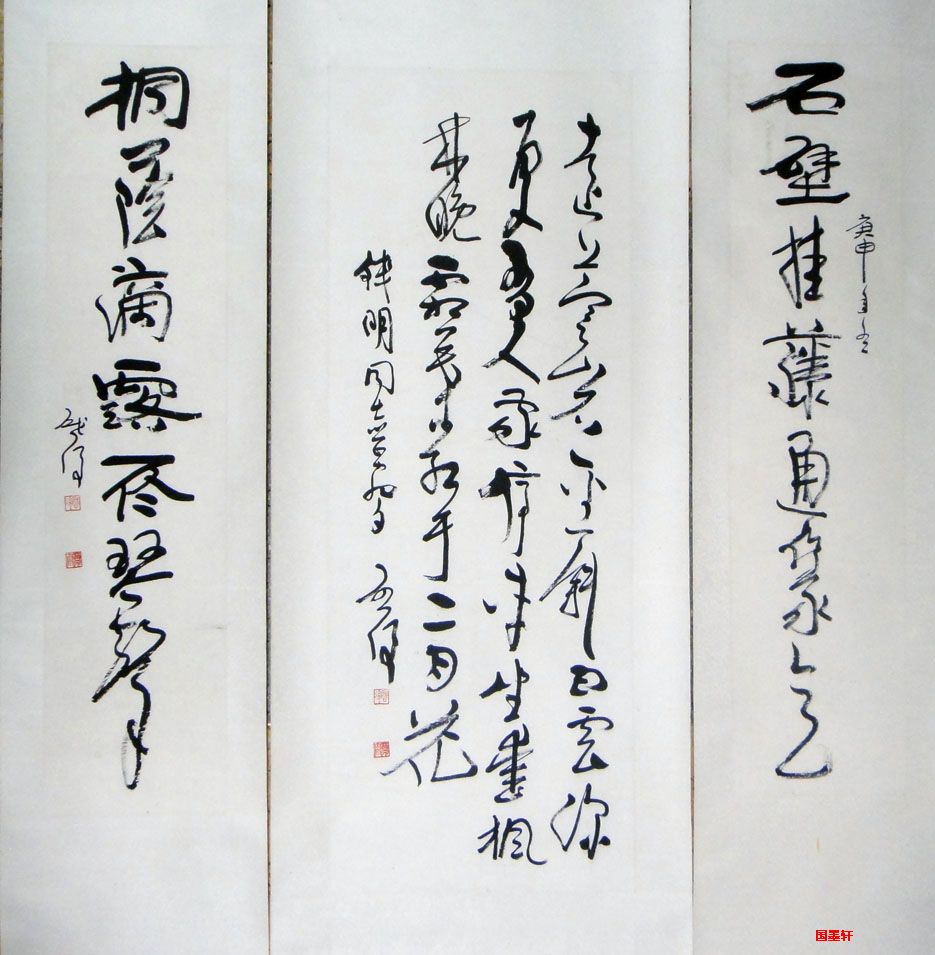 石壁挂藤通篆气
庚申年冬
远上寒山石径斜白云深
处有人家停车坐爱枫
林晚霜叶红于二月花
明同志学习
桐荫滴露尽琴声
国墨轩